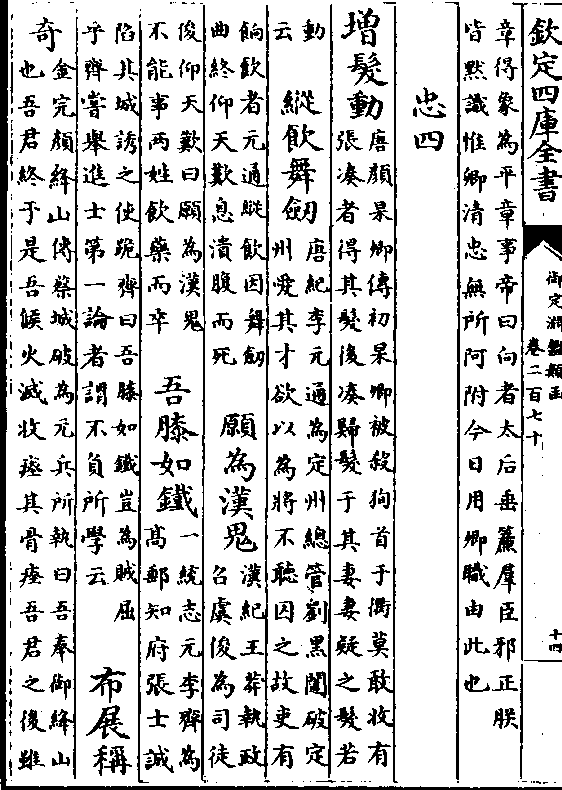 欽定四庫全書
御定淵鑑類函
卷二百七十
十四
章得象為平章事帝曰向者太后垂簾羣臣邪正朕
皆默識惟卿清忠無所阿附今日用卿職由此也
忠四
增髮動
唐顔杲卿傳初杲卿被殺徇首于衢莫敢收有
張湊者得其髮後湊歸髮于其妻妻疑之髮若
動
云
縱飲舞劒
唐紀李元通為定州總管劉黑闥破定
州愛其才欲以為將不聽囚之故吏有
餉飲者元通縱飲因舞劒
曲終仰天歎息潰腹而死
願為漢鬼
漢紀王莽執政
召虞俊為司徒
俊仰天歎曰願為漢鬼
不能事两姓飲藥而卒
吾膝如鐵
一統志元李齊為
高郵知府張士誠
陷其城誘之使跪齊曰吾膝如鐵豈為賊屈
乎齊嘗舉進士第一論者謂不負所學云
布展稱
奇
金完顔絳山傳蔡城破為元兵所執曰吾奉御絳山
也吾君終于是吾候火滅收瘞其骨瘞吾君之後雖